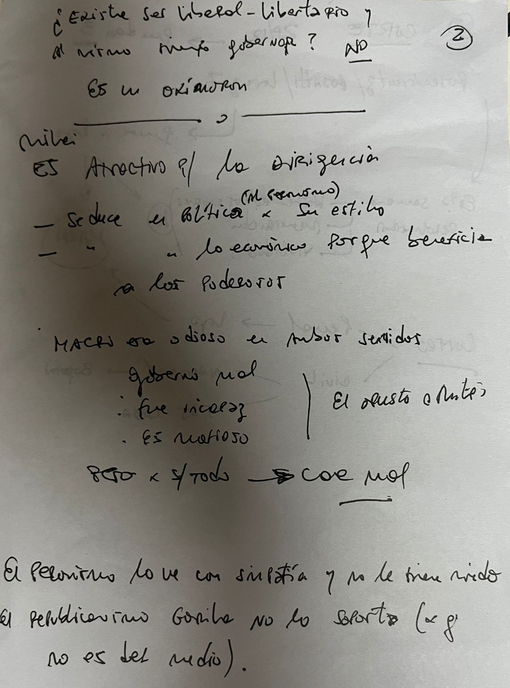 ¿Existe ser liberal-libertario y
al mismo tiempo gobernar? NO
②
Es un oxímoron
Milei
Es Atractivo p/ la dirigencia
(al peronismo)
— Seduce en Política x Su estilo
— " " lo económico porque beneficia
a los Poderosos
MACRI era odioso en Ambos sentidos
gobernó mal
. fue incapaz
. Es mafioso
El
PERO x s/TODO → cae mal
El Peronismo lo ve con simpatía y no le tiene miedo
El Republicanismo Gorila NO lo soporta (x q'
no es del medio).